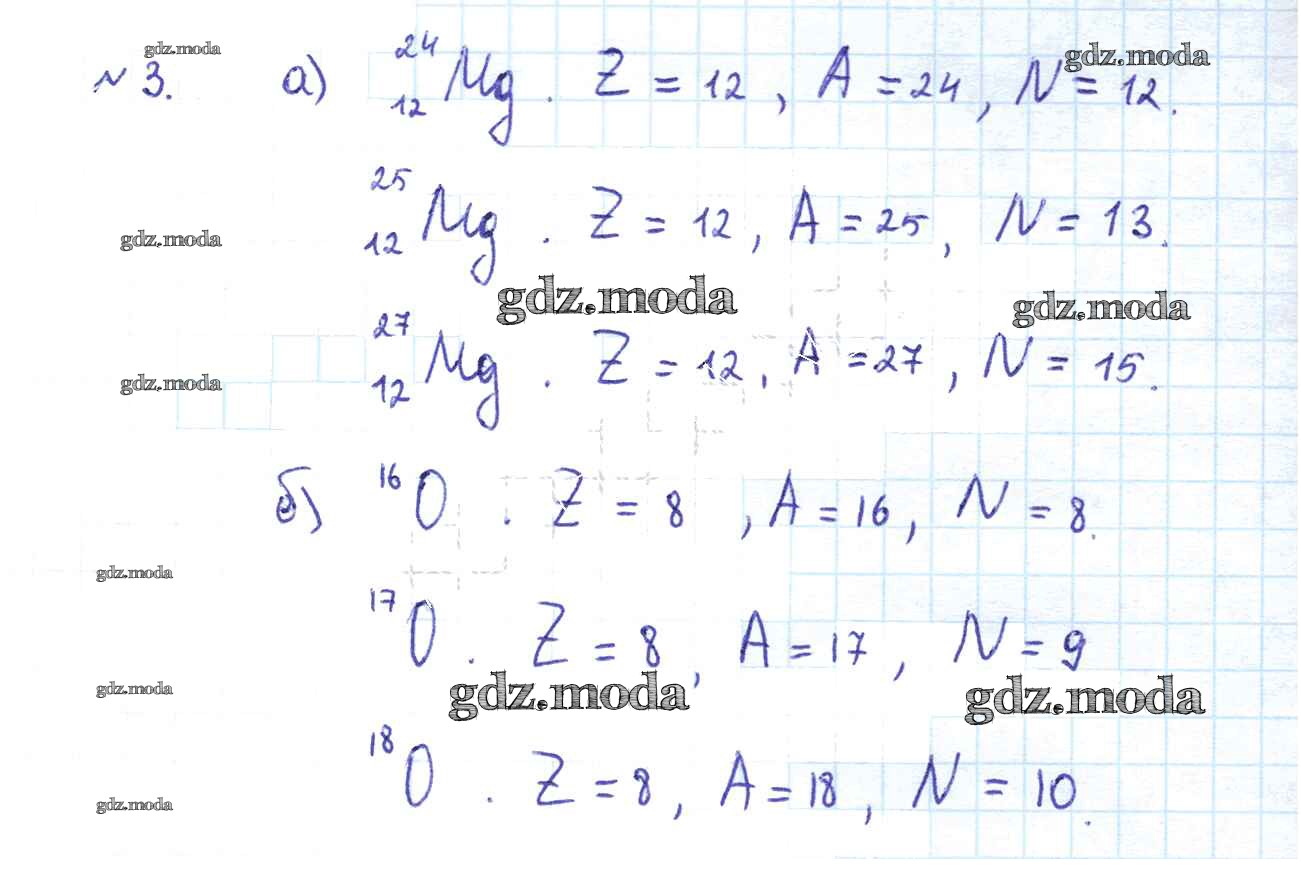 gdz.moda
№ 3. а) ²⁴₁₂Mg. Z = 12, A = 24, N = 12.
gdz.moda
²⁵₁₂Mg. Z = 12, A = 25, N = 13.
gdz.moda
gdz.moda
gdz.moda
²⁷₁₂Mg. Z = 12, A = 27, N = 15.
gdz.moda
б) ¹⁶O. Z = 8, A = 16, N = 8.
gdz.moda
¹⁷O. Z = 8, A = 17, N = 9
gdz.moda
gdz.moda
gdz.moda
¹⁸O. Z = 8, A = 18, N = 10.
gdz.moda